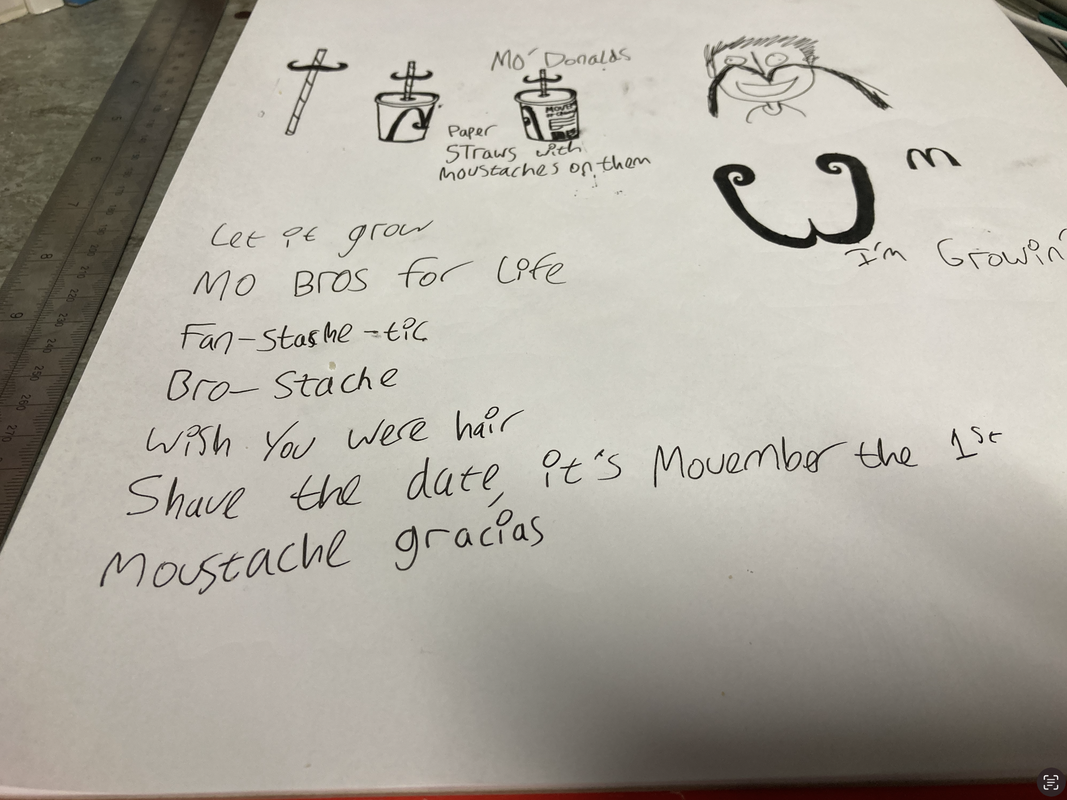 Mo' Donalds
Paper
Straws with
moustaches on them
m
I'm Growin'
Let it grow
MO BROS for Life
Fan-stashe-tic
Bro-Stache
Wish You were hair
Shave the date, it's Movember the 1st
Moustache gracias